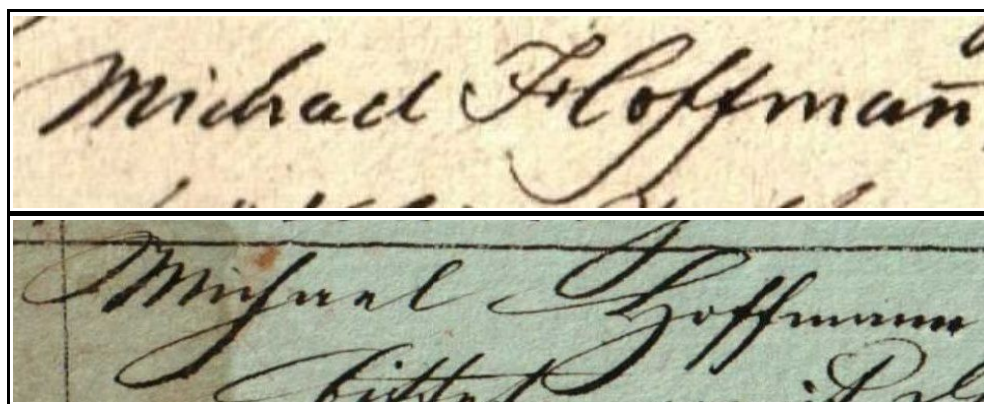 Michael Hoffman̄
Michael Hoffmann
bittet